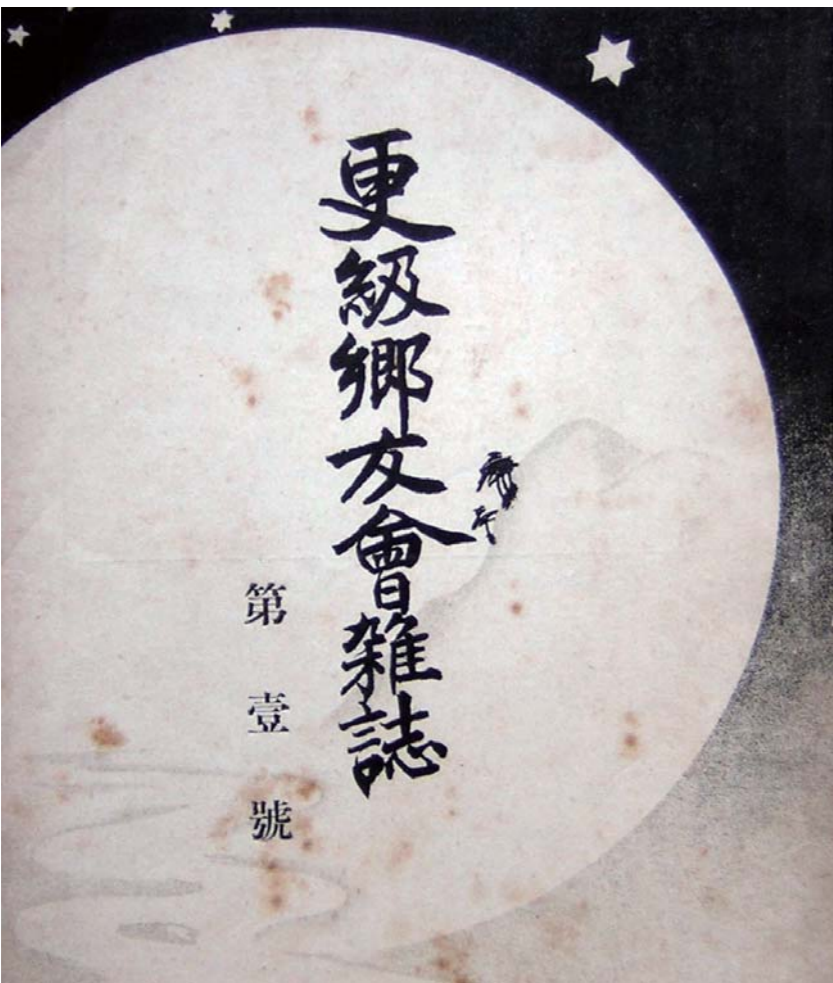 更級郷友會雑誌
第壹號